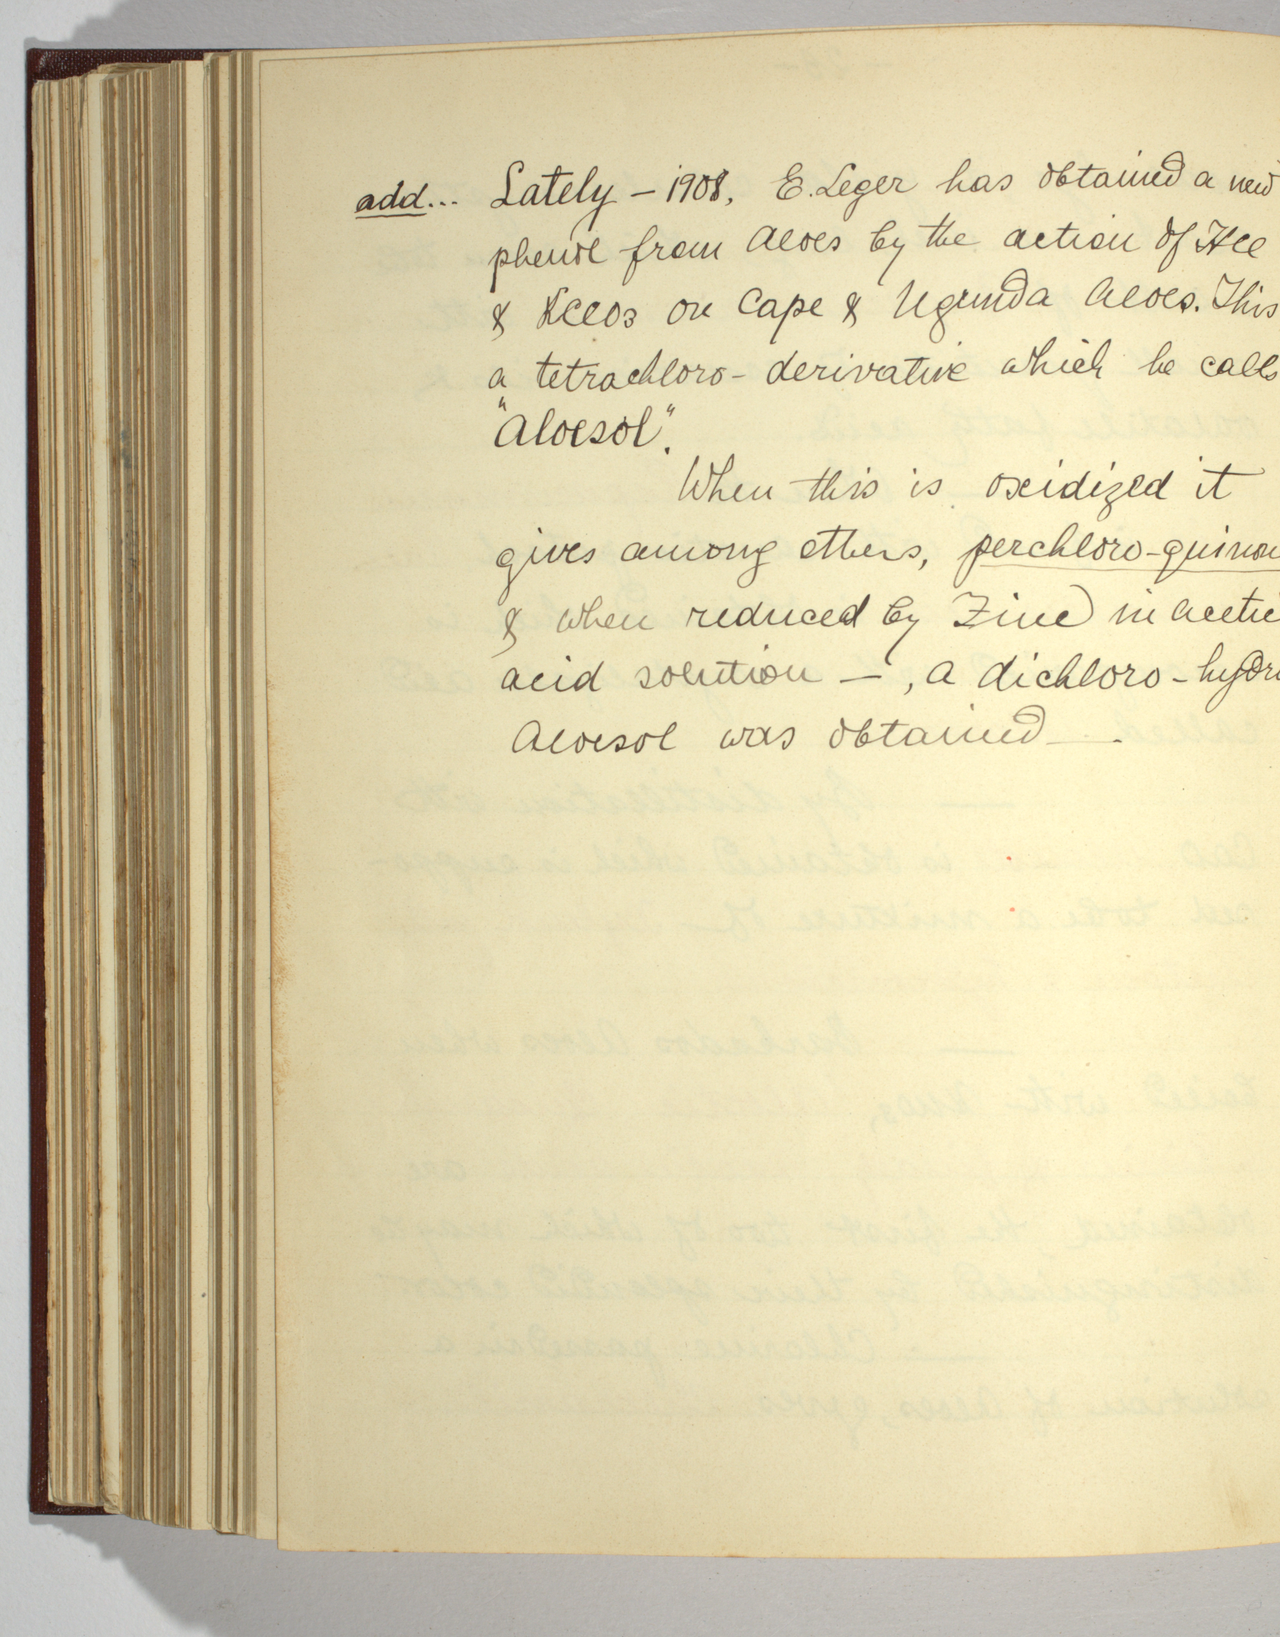 add... Lately – 1908, E. Leger has obtained a new
phenol from Aloes by the action of HCl
& KClO3 on Cape & Ugunda Aloes. This
a tetrachloro- derivative which he calls
"Aloesol".
When this is oxidized it
gives among others, perchloro-quinon
& when reduced by Zinc in acetic
acid solution — , a dichloro-hydro
Aloesol was obtained —.